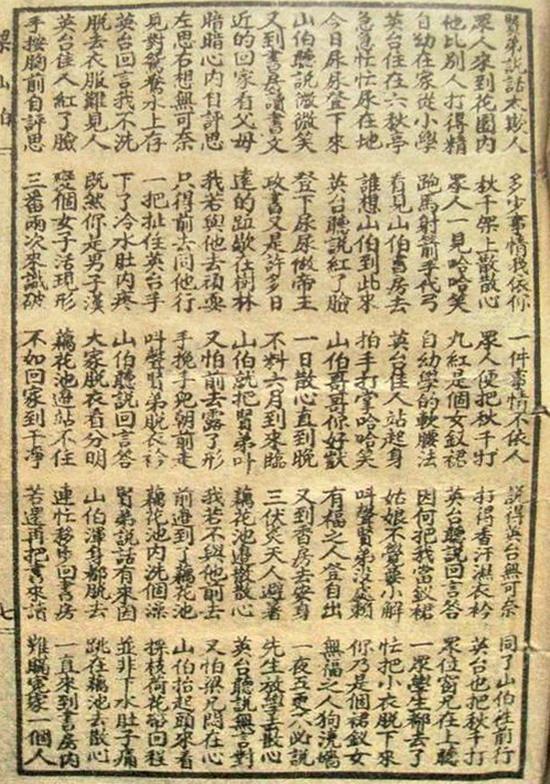 賢弟說話太欺人 多少事情我依你 一件事情不依人 說得英台無可奈 同了山伯往前行
眾人來到花園內 秋千架上散散心 眾人便把秋千打 打得香汗濕衣衿 英台也把秋千打
他比別人打得精 眾人一見哈哈笑 九紅是個女釵裙 英台聽說回言答 眾位窗兄在上聽
自幼在家從小學 跑馬射箭手代弓 自幼學的軟腰法 因何把我當釵裙 一眾學生都去了
英台住在六秋亭 看見山伯書房去 英台佳人站起身 姑娘不覺要小解 忙把小衣脫下來
急急忙忙尿在地 誰想山伯到此來 拍手打掌哈哈笑 叫聲賢弟沒處賴 你乃是個裙釵女
今日尿尿登下來 英台聽說紅了臉 山伯哥哥你好獃 有福之人登自出 無福之人狗
山伯聽說微微笑 登下尿尿做帝王 一日散心直到晚 又到香房去安身 一夜五更不必說
又到書房讀書文 政書又是許多日 不料六月到來臨 三伏炎天人避暑 先生放學去散心
近的回家看父母 遠的跕歇在樹林 山伯就把賢弟叫 藕花池邊散散心 英台聽說無言對
暗暗心內自評思 我若與他去頑耍 又怕前去露了形 我若不與他前去 又怕梁兄悶在心
左思右想無可奈 只得前去同他行 手挽手兒朝前走 前邊到了藕花池 山伯抬起頭來看
見對鴛鴦水上存 一把扯住英台手 叫聲賢弟脫衣衿 藕花池內洗個澡 採枝荷花回程
英台回言我不洗 下了冷水肚內疼 山伯聽說回言答 賢弟說話有來因 並非下水肚子痛
脫去衣服難見人 既然你是男子漢 大家脫衣看分明 山伯渾身都脫去 跳在藕池去散心
英台佳人紅了臉 變個女子活現形 藕花池邊站不住 連忙移步回書房 一直來到書房內
手按胸前自評思 三番兩次來識破 不如回家到干凈 若還再把書來讀 難瞞冤家一個人
梁山伯 七